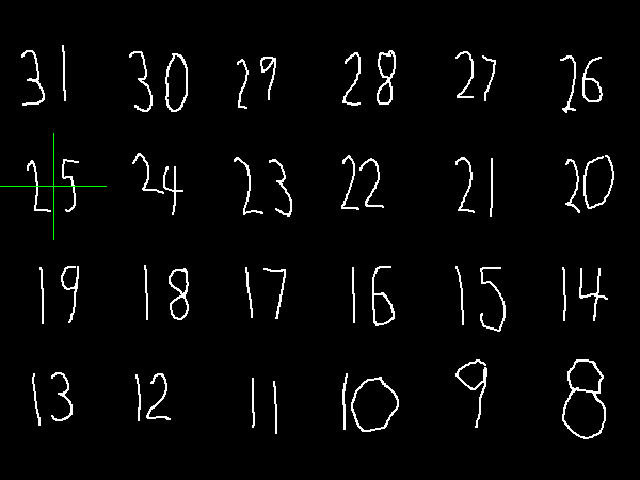 31 30 29 28 27 26
25 24 23 22 21 20
19 18 17 16 15 14
13 12 11 10 9 8